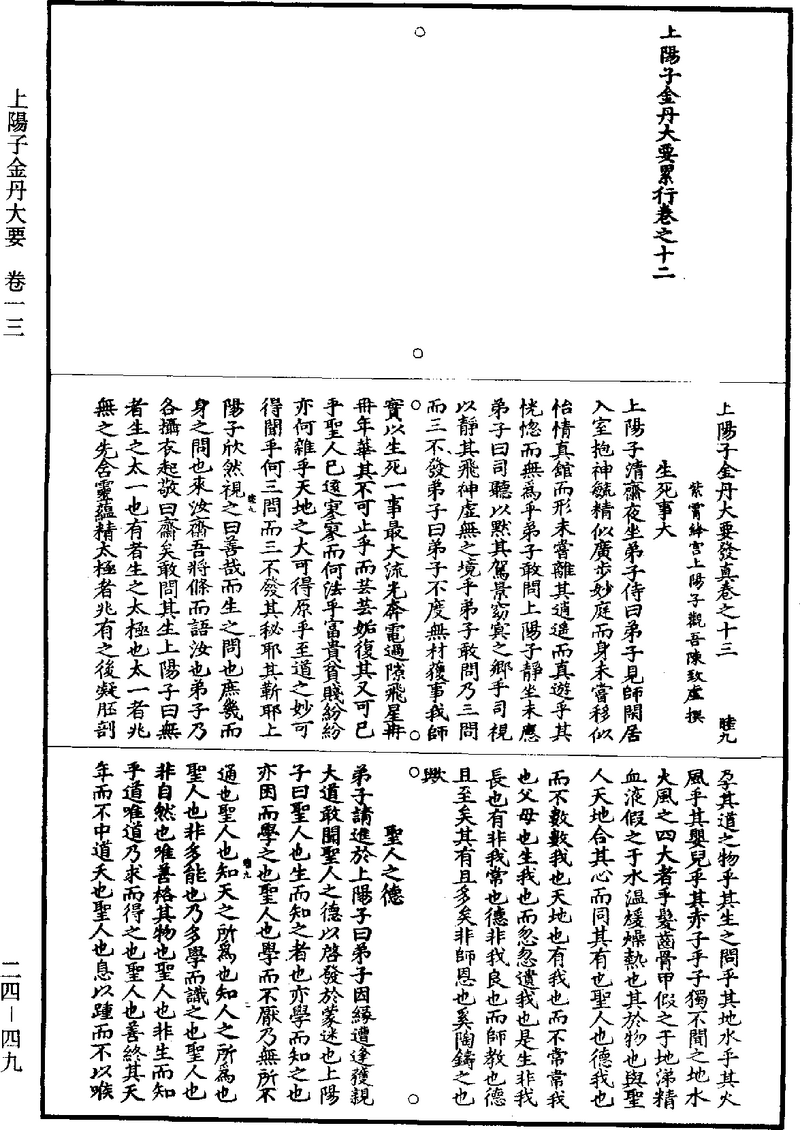 上陽子金丹大要 卷一三
二四－四九
上陽子金丹大要累行卷之十二
上陽子金丹大要發真卷之十三 睦九
紫霄絳宮上陽子觀吾陳致虛撰
生死事大
上陽子清齋夜坐弟子侍曰弟子見師閑居
入室抱神毓精似廣步妙庭而身未嘗移似
怡情真館而形未嘗離其逍遙而真遊乎其
恍惚而無為乎弟子敢問上陽子靜坐未應
弟子曰司聽以默其駕景窈冥之鄉乎司視
以靜其飛神虛無之境乎弟子敢問乃三問
而三不發弟子曰弟子不度無材獲事我師
實以生死一事最大流光奔電過隙飛星冉
冉年華其不可止乎而芸芸姤復其又可已
乎聖人已遠寥寥而何法乎富貴貧賤紛紛
亦何雜乎天地之大可得原乎至道之妙可
得聞乎何三問而三不發其秘耶其靳耶上
陽子欣然視之曰善哉而生之問也庶幾而
身之問也來汝齋吾將條而語汝也弟子乃
各攝衣起敬曰齋矣敢問其生上陽子曰無
者生之太一也有者生之太極也太一者兆
無之先含靈蘊精太極者兆有之後凝胚剖
孕其道之物乎其生之問乎其地水乎其火
風乎其嬰兒乎其赤子乎子獨不聞之地水
火風之四大者乎髮齒骨甲假之于地涕精
血液假之于水溫煖燥熱也其於物也與聖
人天地合其心而同其有也聖人也德我也
而不數數我也天地也有我也而不常常我
也父母也生我也而忽忽遺我也是生非我
長也有非我常也德非我良也而師教也德
且至矣其有且多矣非師恩也奚陶鑄之也
歟
聖人之德
弟子請進於上陽子曰弟子因緣遭逢獲親
大道敢聞聖人之德以啓發於蒙迷也上陽
子曰聖人也生而知之者也亦學而知之也
亦因而學之也聖人也學而不厭乃無所不
通也聖人也知天之所為也知人之所為也
聖人也非多能也乃多學而識之也聖人也
非自然也唯善格其物也聖人也非生而知
乎道唯道乃求而得之也聖人也善終其天
年而不中道夭也聖人也息以踵而不以喉